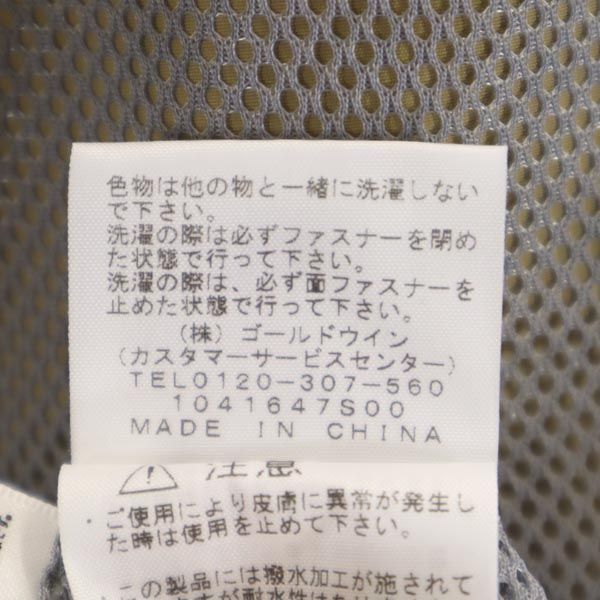 色物は他の物と一緒に洗濯しない
で下さい。
洗濯の際は必ずファスナーを閉め
た状態で行って下さい。
洗濯の際は、必ず面ファスナーを
止めた状態で行って下さい。
(株) ゴールドウイン
(カスタマーサービスセンター)
TEL0120-307-560
1041647S00
MADE IN CHINA
注意
ご使用により皮膚に異常が発生し
た時は使用を止めて下さい。
この製品には撥水加工が施されて